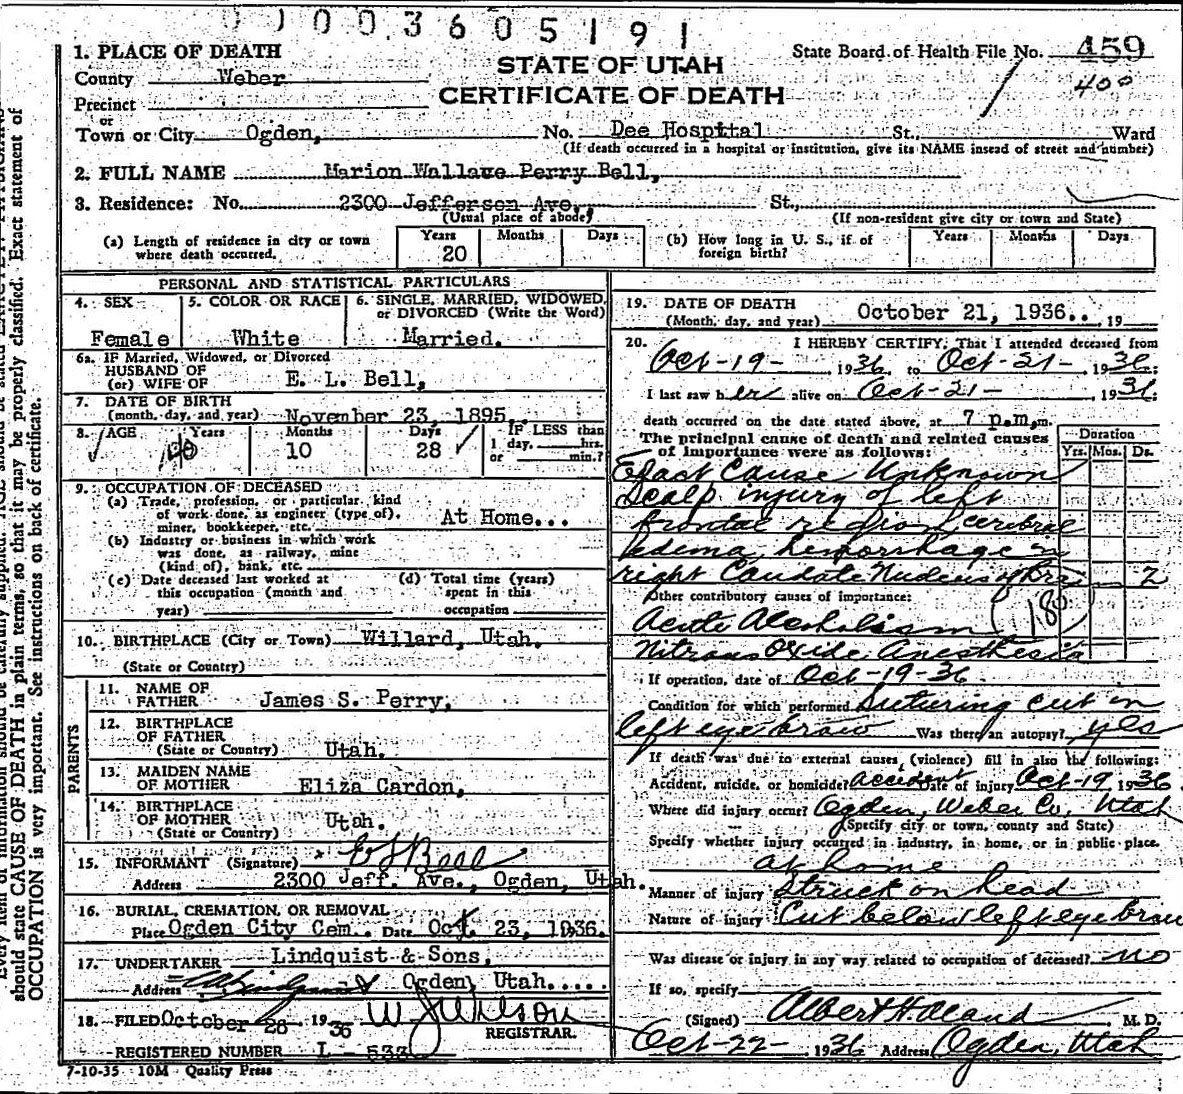 0003605191
1. PLACE OF DEATH
State Board of Health File No. 459
STATE OF UTAH
County Weber
400
CERTIFICATE OF DEATH
Precinct
or
Town or City Ogden, No. Dee Hospital St., Ward
(If death occurred in a hospital or institution, give its NAME insead of street and number)
2. FULL NAME Marion Wallace Perry Bell,
3. Residence: No. 2300 Jefferson Ave., St.,
(Usual place of abode)
(If non-resident give city or town and State)
(a) Length of residence in city or town where death occurred.
Years Months Days
20
(b) How long in U. S., if of foreign birth?
Years Months Days
PERSONAL AND STATISTICAL PARTICULARS
4. SEX
Female
5. COLOR OR RACE
White
6. SINGLE, MARRIED, WIDOWED, or DIVORCED (Write the Word)
Married.
6a. IF Married, Widowed, or Divorced
HUSBAND OF
(or) WIFE OF E. L. Bell,
7. DATE OF BIRTH
(month, day, and year) November 23, 1895.
8. AGE Years Months Days IF LESS than
40 10 28 1 day, hrs.
or min.?
9. OCCUPATION OF DECEASED
(a) Trade, profession, or particular kind of work done, as engineer (type of), miner, bookkeeper, etc. At Home...
(b) Industry or business in which work was done, as railway, mine (kind of), bank, etc.
(c) Date deceased last worked at this occupation (month and year)
(d) Total time (years) spent in this occupation
10. BIRTHPLACE (City or Town) Willard, Utah.
(State or Country)
PARENTS
11. NAME OF FATHER James S. Perry,
12. BIRTHPLACE OF FATHER
(State or Country) Utah.
13. MAIDEN NAME OF MOTHER Eliza Cardon,
14. BIRTHPLACE OF MOTHER
(State or Country) Utah.
15. INFORMANT (Signature) x E L Bell
Address 2300 Jeff. Ave., Ogden, Utah.
16. BURIAL, CREMATION, OR REMOVAL
Place Ogden City Cem.. Date Oct. 23, 1936.
17. UNDERTAKER Lindquist & Sons,
Address Ogden, Utah.....
18. FILED October 26 1936
REGISTRAR.
REGISTERED NUMBER L - 533
7-10-35 10M Quality Press
19. DATE OF DEATH
(Month, day, and year) October 21, 1936.., 19
20. I HEREBY CERTIFY, That I attended deceased from
Oct-19-, 1936, to Oct-21-, 1936;
I last saw her alive on Oct-21-, 1936;
death occurred on the date stated above, at 7 p.m.m.
The principal cause of death and related causes of importance were as follows:
Duration
Yrs. Mos. Ds.
Exact Cause Unknown
Scalp injury of left
frontal region, cerebral
edema, hemorrhage in
right Caudate Nucleus of Brain 2
Other contributory causes of importance:
180
Acute Alcoholism
Nitrous Oxide Anesthesia
If operation, date of Oct-19-36
Condition for which performed Suturing cut in
left eye brow Was there an autopsy? yes
If death was due to external causes, (violence) fill in also the following:
Accident, suicide, or homicide? Accident Date of injury Oct-19 1936.
Where did injury occur? Ogden, Weber Co, Utah
(Specify city or town, county and State)
Specify whether injury occurred in industry, in home, or in public place.
at home
Manner of injury Struck on head
Nature of injury Cut below left eye brow
Was disease or injury in any way related to occupation of deceased? no
If so, specify
(Signed) Albert H Aland M. D.
Oct-22-, 1936 Address Ogden, Utah
should state CAUSE OF DEATH in plain terms, so that it may be properly classified. Exact statement of
OCCUPATION is very important. See instructions on back of certificate.